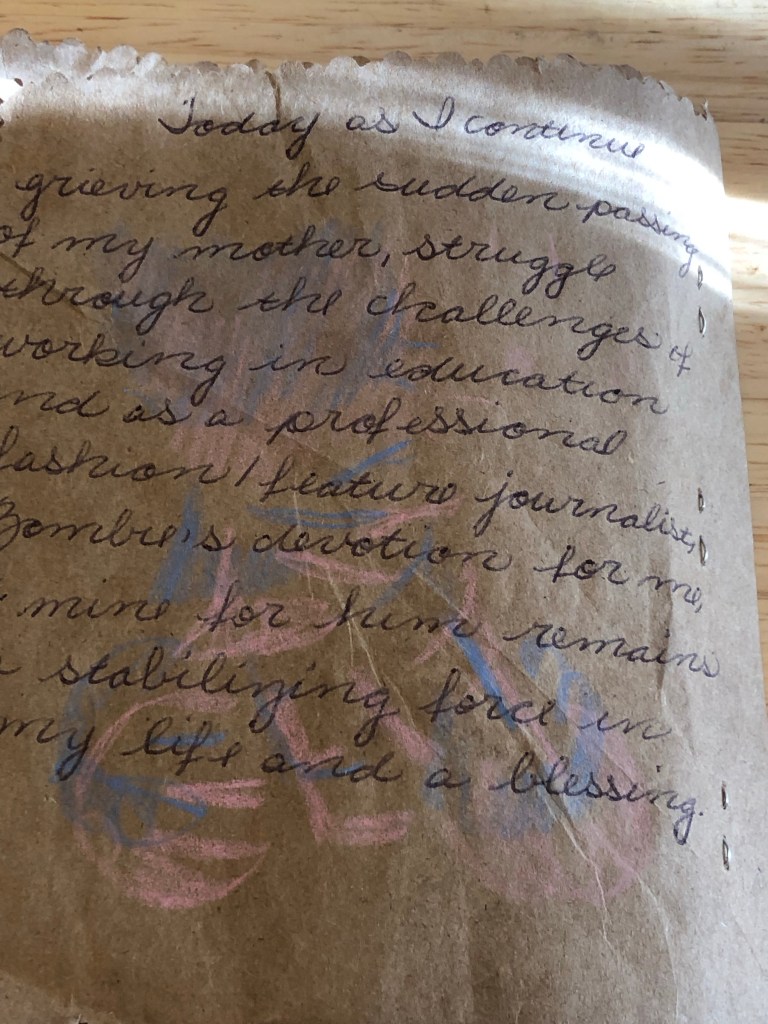 Today as I continue
grieving the sudden passing
of my mother, struggle
through the challenges of
working in education
nd as a professional
fashion/feature journalist,
Zombie's devotion for me,
mine for him remains
stabilizing force in
my life and a blessing.